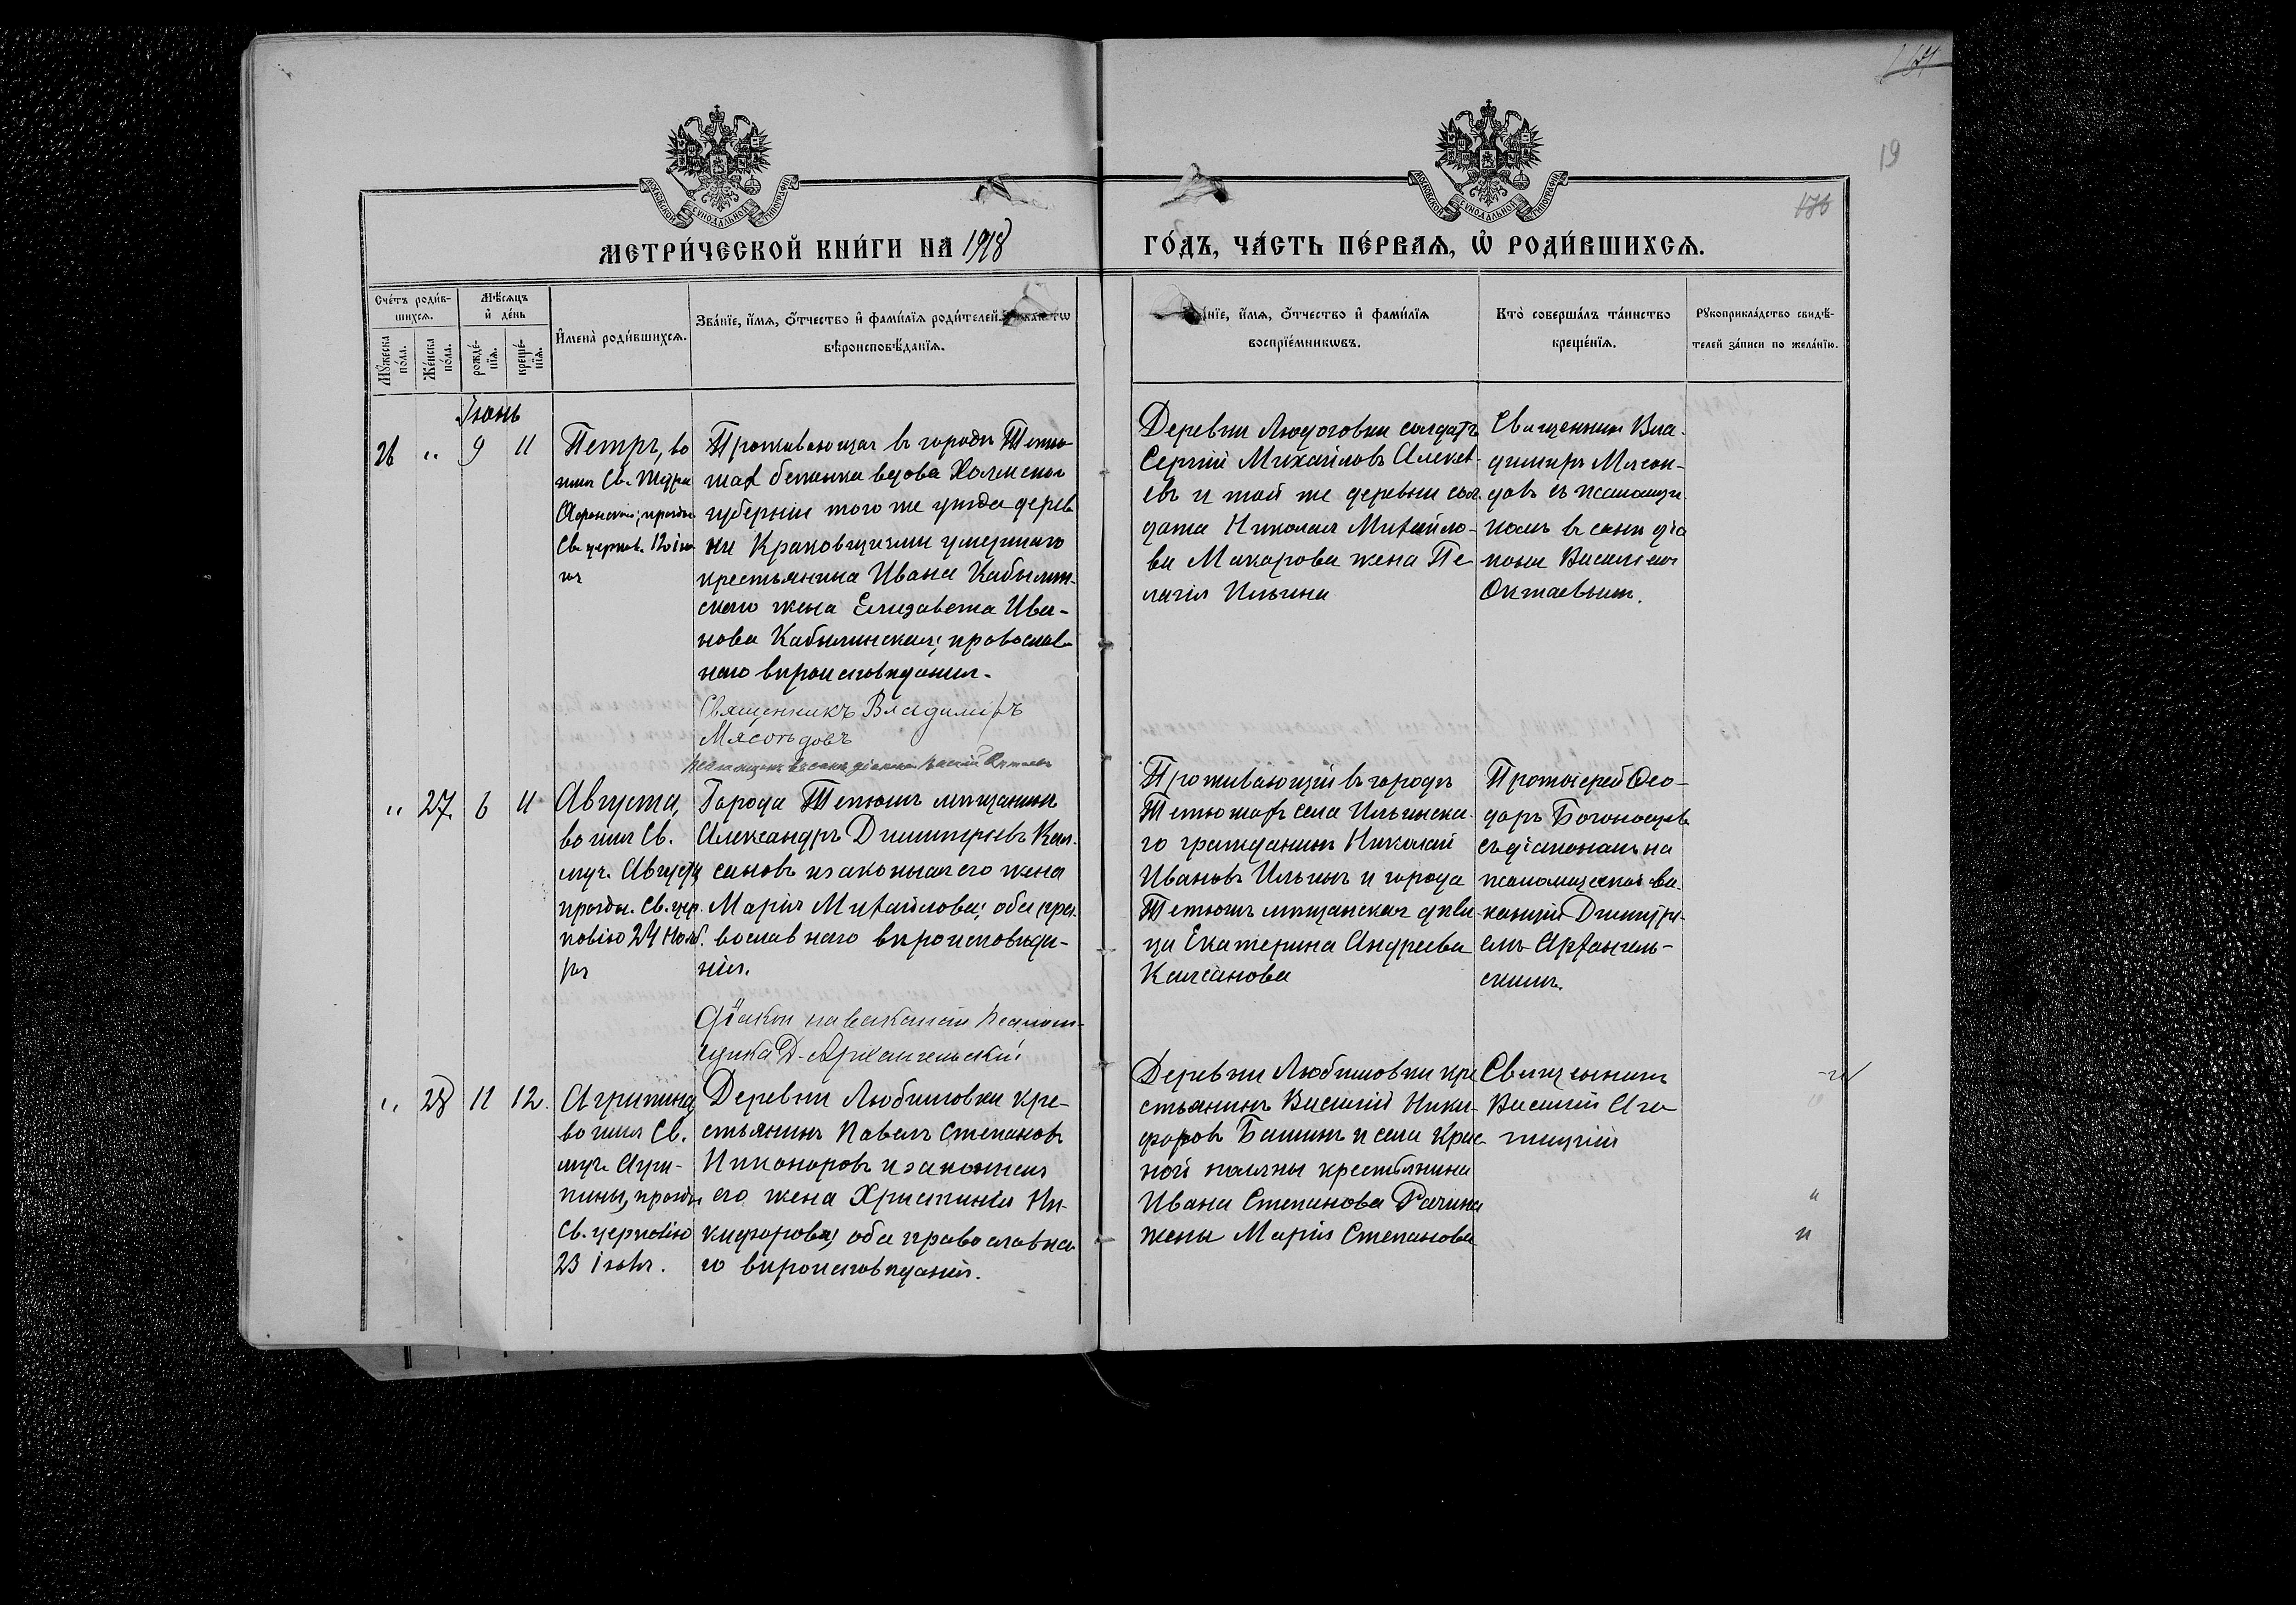 19
176
МЕТРИ́ЧЕСКОЙ КНИ́ГИ НА 1918
ГО́ДЪ, ЧА́СТЬ ПЕ́РВАЯ, Ѡ҆ РОДИ́ВШИХСЯ.
Сче́тъ роди́в-
шихся.
Мѣ́сяцъ
и҆ де́нь
Мꙋ́жеска по́ла.
Же́нска по́ла.
рожде́-нїя.
креще́-нїя.
И҆мена̀ роди́вшихся.
Зва́нїе, и҆́мя, ѻ҆́тчество и҆ фамилїя роди́телей
вѣроисповѣ́данїя.
и҆́мя, ѻ҆́тчество и҆ фами́лїя
воспрїе́мникѡвъ.
Кто̀ соверша́лъ та́инство
креще́нїя.
Рꙋкоприкла́дство свидѣ́-
телей за́писи по жела́нїю.
Іюнь
26 " 9 11
Петръ, во
имя Св. Петра
Афонскаго; праздн.
Св. церков. 12 ію
ня
Проживающая въ городѣ Тетю-
шах беженка вдова Холмской
губерніи того же уѣзда дерев
ни умершаго
крестьянина Ивана Кабылин-
скаго жена Елизавета Ива-
нова Кабылинская; православ
наго вѣроисповѣданія.
Священникъ Владиміръ
Мясоѣдовъ
Псаломщикъ въ санѣ діакона
Деревни Людоговки солдатъ
Сергій Михайловъ Алексѣ-
евъ и той же деревни сол
дата Николая Михайло-
ва Макарова жена Пе
лагія Ильина
Священникъ Вла-
диміръ Мясоѣ-
довъ съ псаломщи
комъ въ санѣ діа
кона Василіемъ
Октаевымъ.
" 27. 6 11
Августа,
во имя Св.
муч. Августы
праздн. Св. цер.
ковію 24 Нояб.
ря
Города Тетюшъ мѣщанинъ
Александръ Димитріевъ Кал-
сановъ и законная его жена
Марія Михайлова; оба пра-
вославнаго вѣроисповѣда-
нія.
Діаконъ на вакансіи псалом-
щика Д. Архангельскій
Проживающій въ городѣ
Тетюшахъ села Ильинска-
го гражданинъ Николай
Ивановъ Ильинъ и города
Тетюшъ мѣщанская дѣви
ца Екатерина Андреева
Калсанова
Протоіерей Ѳео-
доръ Богоносцевъ
съ діакономъ на
псаломщической ва-
кансіи Димитрі-
емъ Архангель-
скимъ.
" 28 11 12.
Агрипина,
во имя Св.
муч. Агри-
пины, праздн.
Св. церковію
23 іюня.
Деревни Любимовки кре-
стьянинъ Павелъ Степановъ
Никаноровъ и законная
его жена Христинія Ни-
кифорова; оба православна
го вѣроисповѣданія.
Деревни Любимовки кре
стьянинъ Василій Ники-
форовъ Башинъ и села Крас
ной поляны крестьянина
Ивана Степанова Рачина
жена Марія Степанова
Священникъ
Василій